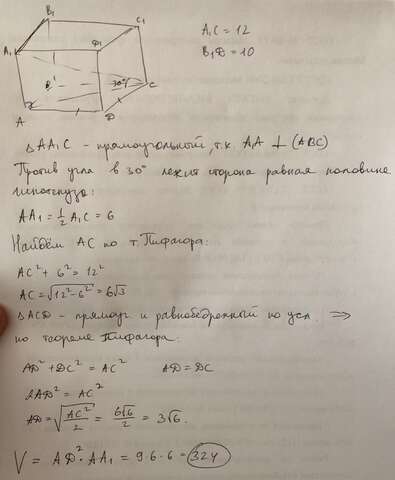 B₁
C₁
A₁
D₁
30°
C
A
D
A₁C = 12
B₁D = 10
△ AA₁C - прямоугольный, т.к. AA ⊥ (ABC)
Против угла в 30° лежит сторона равная половине
гипотенузы:
AA₁ = 1/2 A₁C = 6
Найдём AC по т. Пифагора:
AC² + 6² = 12²
AC = √(12² - 6²) = 6√3
△ ACD - прямоуг и равнобедренный по усл. ⇒
по теореме Пифагора:
AD² + DC² = AC² AD = DC
2AD² = AC²
AD = √(AC²/2) = 6√6/2 = 3√6.
V = AD² · AA₁ = 9·6·6 = 324